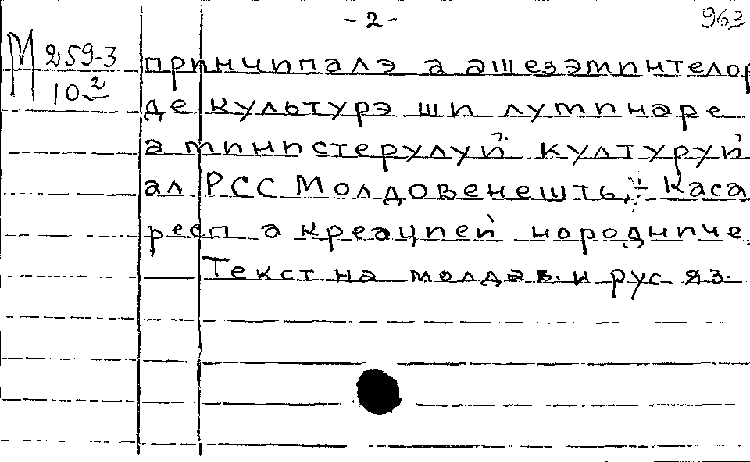 - 2 -
963
М 259-3
10²
принчипалэ а ашезэминтелор
де културэ ши луминаре
а министерулуй културуй
ал РСС Молдовенешть, Каса
респ а креацией народниче.
Текст на молдав. и рус яз.